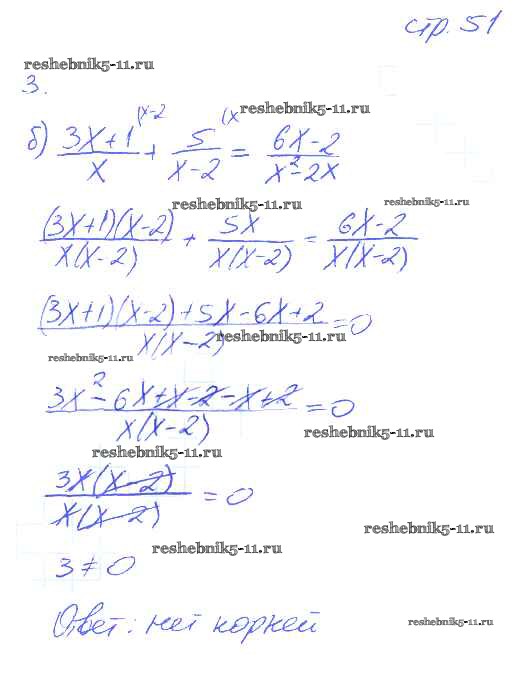 стр. 51
reshebnik5-11.ru
3.
(x-2 (x reshebnik5-11.ru
б) (3x+1)/x + 5/(x-2) = (6x-2)/(x²-2x)
reshebnik5-11.ru reshebnik5-11.ru
(3x+1)(x-2)/x(x-2) + 5x/x(x-2) = 6x-2/x(x-2)
(3x+1)(x-2)+5x-6x+2/x(x-2) = 0
reshebnik5-11.ru reshebnik5-11.ru
3x²-6x+x-2-x+2/x(x-2) = 0
reshebnik5-11.ru
reshebnik5-11.ru
3x(x-2)/x(x-2) = 0
reshebnik5-11.ru
reshebnik5-11.ru
3 ≠ 0
Ответ: нет корней
reshebnik5-11.ru